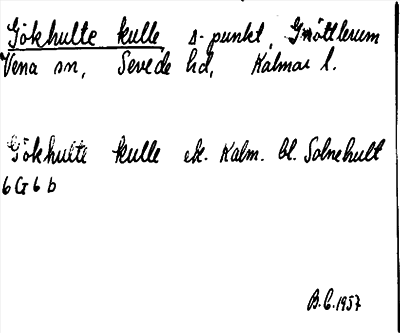 Gökhulte kulle s-punkt, Gnöttlerum
Vena sn, Sevede hd, Kalmar l.
Gökhulte kulle ek. Kalm. bl. Solnehult
6 G 6 b
B.C. 1957